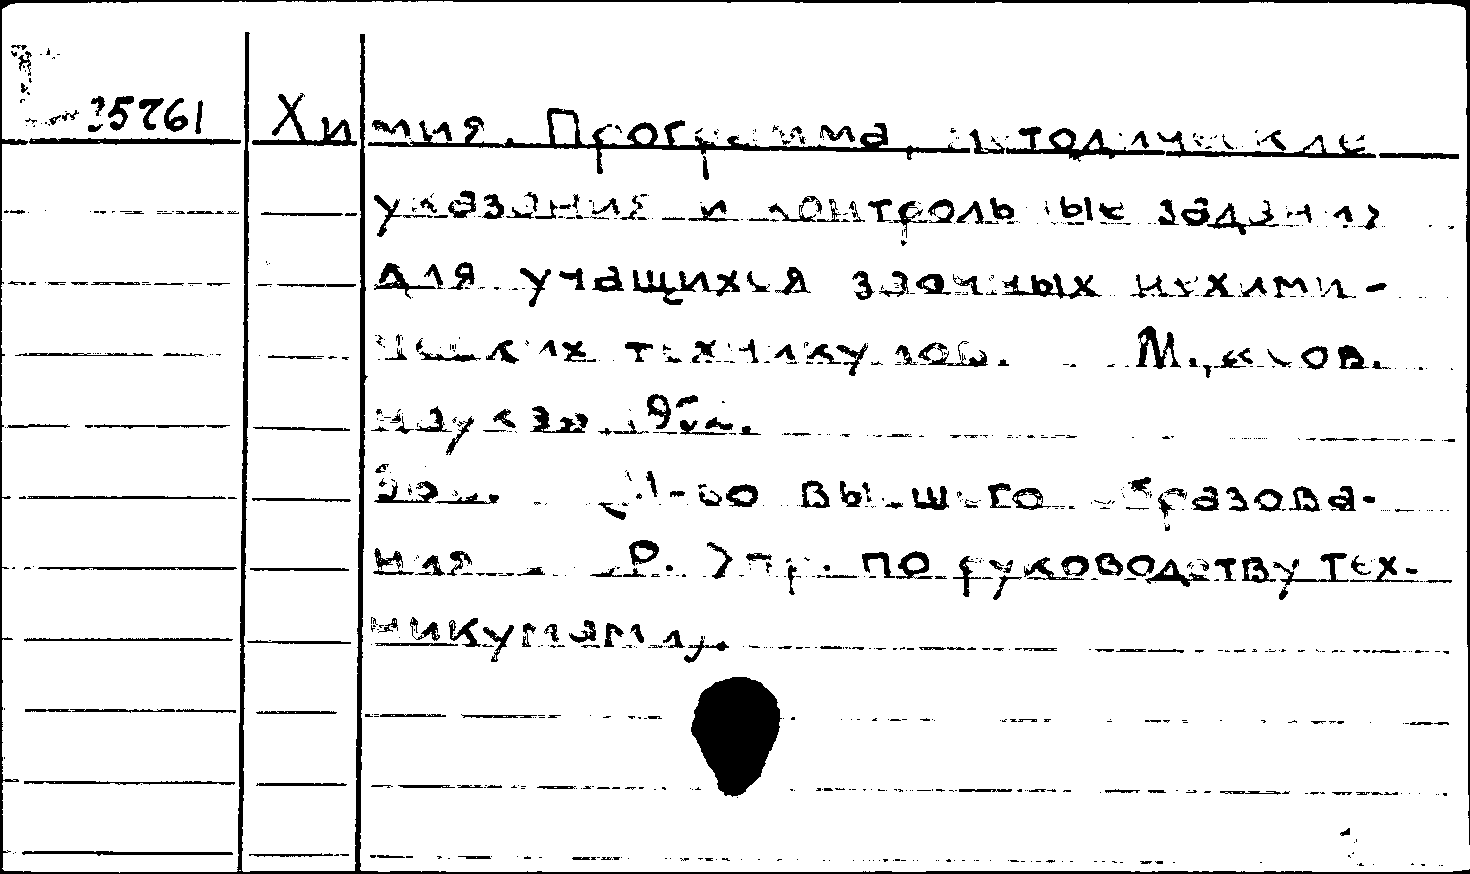 35761 Химия. Программа, методические
указания и контрольные задания
для учащихся заочных нехими-
ческих техникумов. М., «Сов.
наука»
вы сшего образова-
ния Р. Упр. по руководству тех-
никумами.